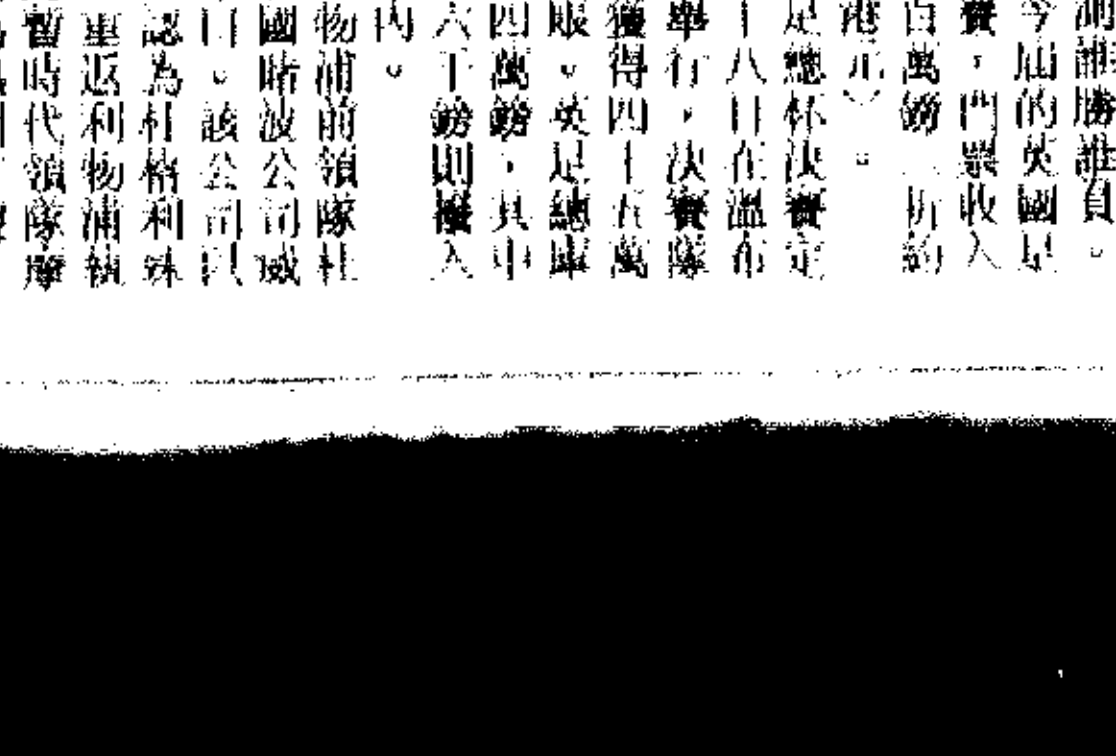 測誰勝誰負。
今屆的英國足
賽，門票收入
百萬鎊（折約
港元）。
足總杯決賽定
十八日在溫布
舉行，決賽隊
獲得四十五萬
賬。英足總庫
四萬鎊，其中
六千鎊則撥入
內。
物浦前領隊杜
國賭波公司威
日。該公司以
認為杜格利殊
重返利物浦執
暫時代領隊摩